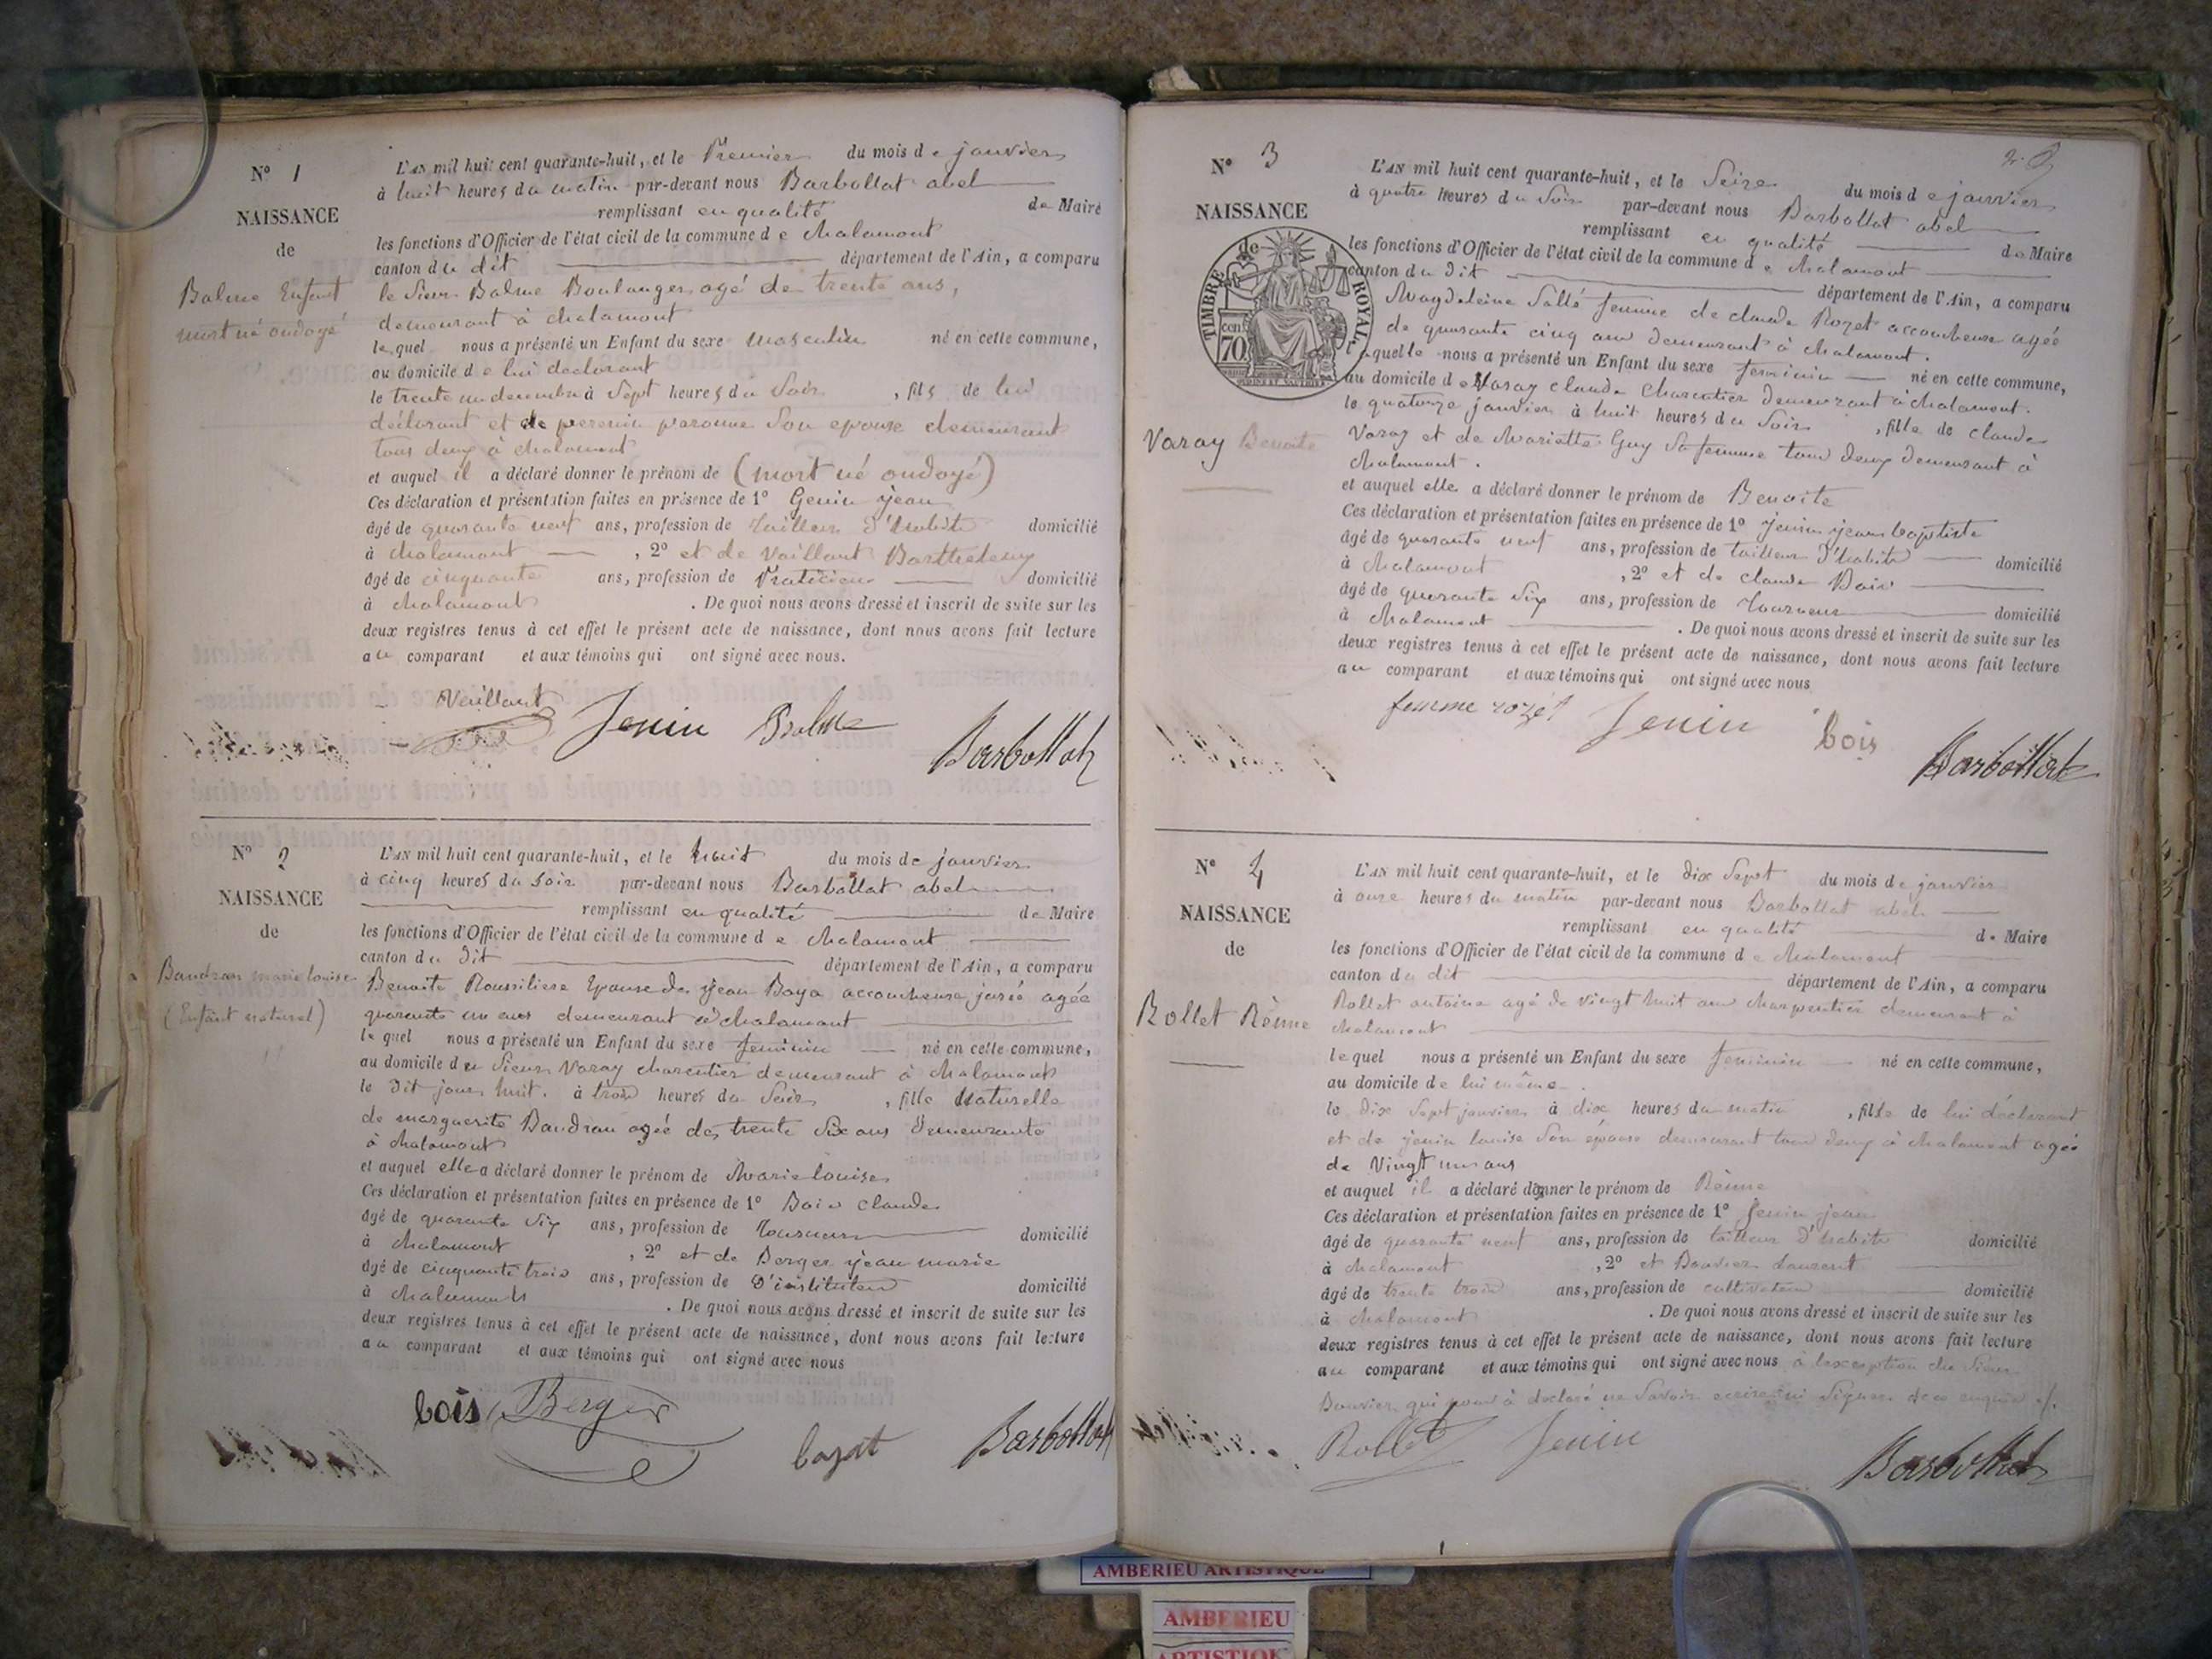 N° 1
NAISSANCE
de
Balme Enfant
mort né ondoyé
L'AN mil huit cent quarante-huit, et le Premier du mois de janvier
à huit heures du matin par-devant nous Barbollat abel
remplissant en qualité de Maire
les fonctions d'Officier de l'état civil de la commune de chalamont
canton du dit département de l'Ain, a comparu
le Sieur Balme Boulanger agé de trente ans,
demeurant à chalamont
lequel nous a présenté un Enfant du sexe masculin né en cette commune,
au domicile de lui declarant
le trente un decembre à Sept heures du Soir, fils de lui
déclarant et de son epouse demeurant
tous deux à chalamont
et auquel il a déclaré donner le prénom de (mort né ondoyé)
Ces déclaration et présentation faites en présence de 1° Genin jean
âgé de quarante neuf ans, profession de tailleur d'habits domicilié
à chalamont, 2° et de Vaillant Barthelemy
âgé de cinquante ans, profession de Praticien domicilié
à chalamont. De quoi nous avons dressé et inscrit de suite sur les
deux registres tenus à cet effet le présent acte de naissance, dont nous avons fait lecture
au comparant et aux témoins qui ont signé avec nous.
Vaillant Jenin Balme Barbollat
N° 2
NAISSANCE
de
Baudran marie louise
(Enfant naturel)
L'AN mil huit cent quarante-huit, et le huit du mois de janvier
à cinq heures du soir par-devant nous Barbollat abel
remplissant en qualité de Maire
les fonctions d'Officier de l'état civil de la commune de chalamont
canton du dit département de l'Ain, a comparu
Benoite Roussiliere Epouse de jean accoucheuse jurée agée
quarante un ans demeurant à chalamont
lequel nous a présenté un Enfant du sexe feminin né en cette commune,
au domicile du Sieur Varay charentier demeurant à chalamont
le dit jour huit. à trois heures du Soir, fille Naturelle
de marguerite Baudran agée de trente Six ans demeurante
à chalamont
et auquel elle a déclaré donner le prénom de Marie louise
Ces déclaration et présentation faites en présence de 1° Bois claude
âgé de quarante Six ans, profession de Tourneur domicilié
à chalamont, 2° et de Berger jean marie
âgé de cinquante trois ans, profession de d'instituteur domicilié
à chalamont. De quoi nous avons dressé et inscrit de suite sur les
deux registres tenus à cet effet le présent acte de naissance, dont nous avons fait lecture
au comparant et aux témoins qui ont signé avec nous
bois Berger Barbollat
N° 3
NAISSANCE
de
TIMBRE ROYAL
70 cent
Varay Benoite
L'AN mil huit cent quarante-huit, et le Seize du mois de janvier
à quatre heures du Soir par-devant nous Barbollat abel
remplissant en qualité de Maire
les fonctions d'Officier de l'état civil de la commune de chalamont
canton du dit département de l'Ain, a comparu
Magdeleine Sallé femme de claude Rozet accoucheuse agée
de quarante cinq ans demeurant à chalamont.
laquelle nous a présenté un Enfant du sexe feminin né en cette commune,
au domicile de Varay claude charentier demeurant à chalamont.
le quatorze janvier à huit heures du Soir, fille de claude
Varay et de Mariette Guy Sa femme tous deux demeurant à
chalamont.
et auquel elle a déclaré donner le prénom de Benoite
Ces déclaration et présentation faites en présence de 1° Jenin jean baptiste
âgé de quarante neuf ans, profession de tailleur d'habits domicilié
à chalamont, 2° et de claude Bois
âgé de quarante Six ans, profession de Tourneur domicilié
à chalamont. De quoi nous avons dressé et inscrit de suite sur les
deux registres tenus à cet effet le présent acte de naissance, dont nous avons fait lecture
au comparant et aux témoins qui ont signé avec nous
femme rozet Jenin bois Barbollat
N° 4
NAISSANCE
de
Rollet Rèine
L'AN mil huit cent quarante-huit, et le dix Sept du mois de janvier
à onze heures du matin par-devant nous Barbollat abel
remplissant en qualité de Maire
les fonctions d'Officier de l'état civil de la commune de chalamont
canton du dit département de l'Ain, a comparu
Rollet antoine agé de vingt huit ans charpentier demeurant à
chalamont
lequel nous a présenté un Enfant du sexe feminin né en cette commune,
au domicile de lui même.
le dix Sept janvier à dix heures du matin, fille de lui déclarant
et de jenin louise Son épouse demeurant tous deux à chalamont agée
de Vingt un ans
et auquel il a déclaré donner le prénom de Rèine
Ces déclaration et présentation faites en présence de 1° Jenin jean
âgé de quarante neuf ans, profession de tailleur d'habits domicilié
à chalamont, 2° et Bouvier Laurent
âgé de trente trois ans, profession de cultivateur domicilié
à chalamont. De quoi nous avons dressé et inscrit de suite sur les
deux registres tenus à cet effet le présent acte de naissance, dont nous avons fait lecture
au comparant et aux témoins qui ont signé avec nous à l'exception du Sieur
Bouvier qui nous à declaré ne Savoir ecrire ni Signer de ce enquis
Rollet Jenin Barbollat
AMBERIEU ARTISTIQUE
AMBERIEU
ARTISTIQUE